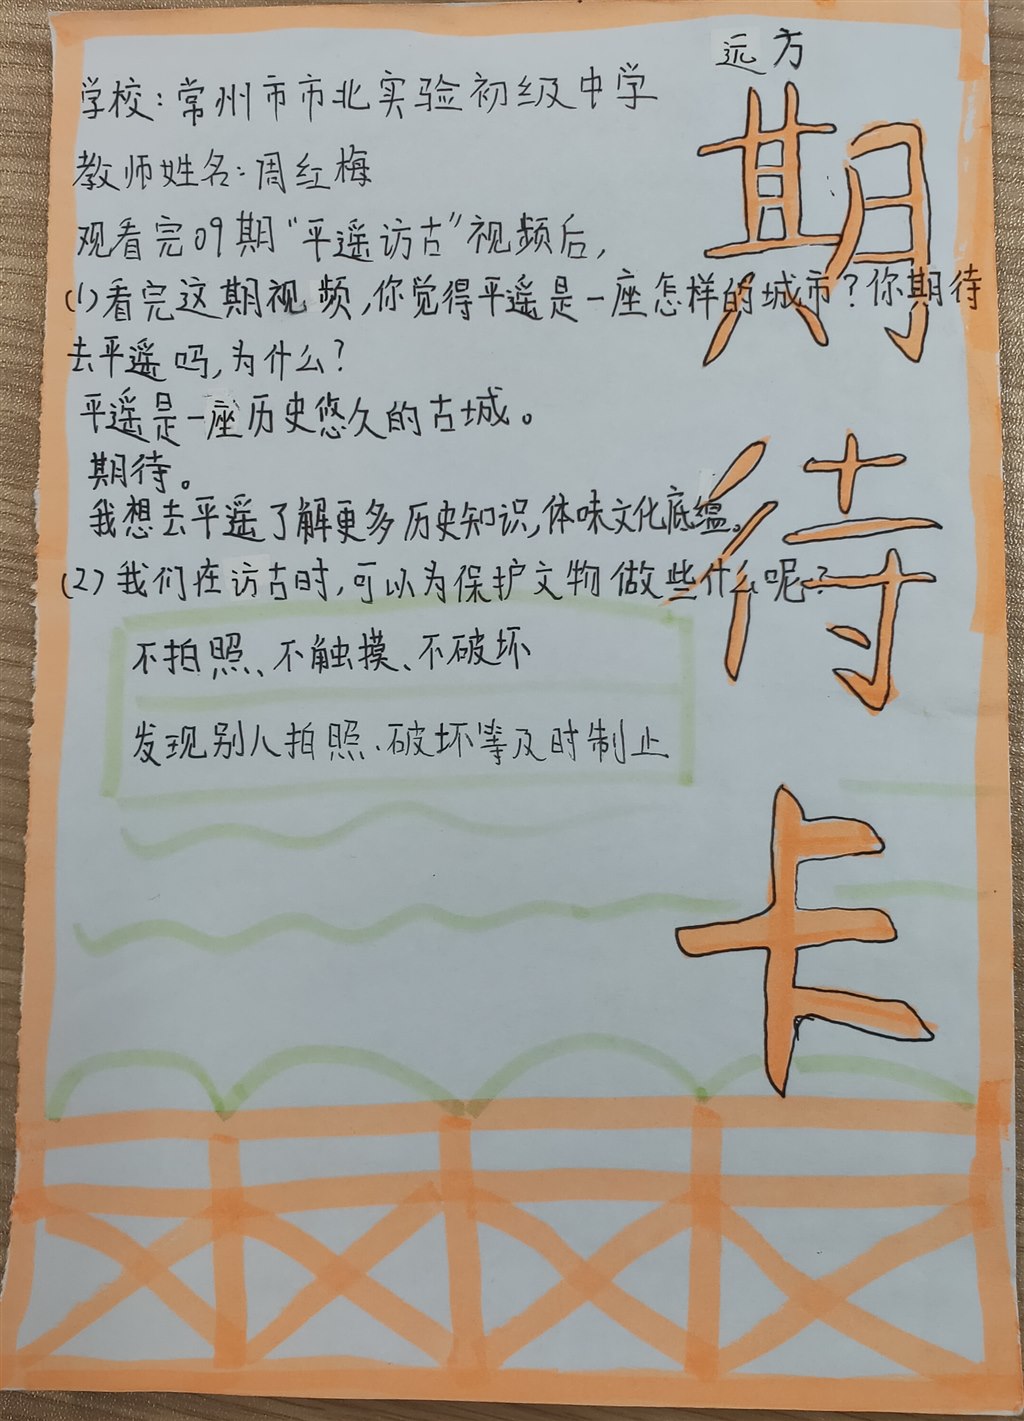 远方
期待卡
学校:常州市市北实验初级中学
教师姓名:周红梅
观看完09期“平遥访古”视频后,
(1)看完这期视频,你觉得平遥是一座怎样的城市?你期待
去平遥吗,为什么?
平遥是一座历史悠久的古城。
期待。
我想去平遥了解更多历史知识,体味文化底蕴。
(2)我们在访古时,可以为保护文物做些什么呢?
不拍照、不触摸、不破坏
发现别人拍照、破坏等及时制止